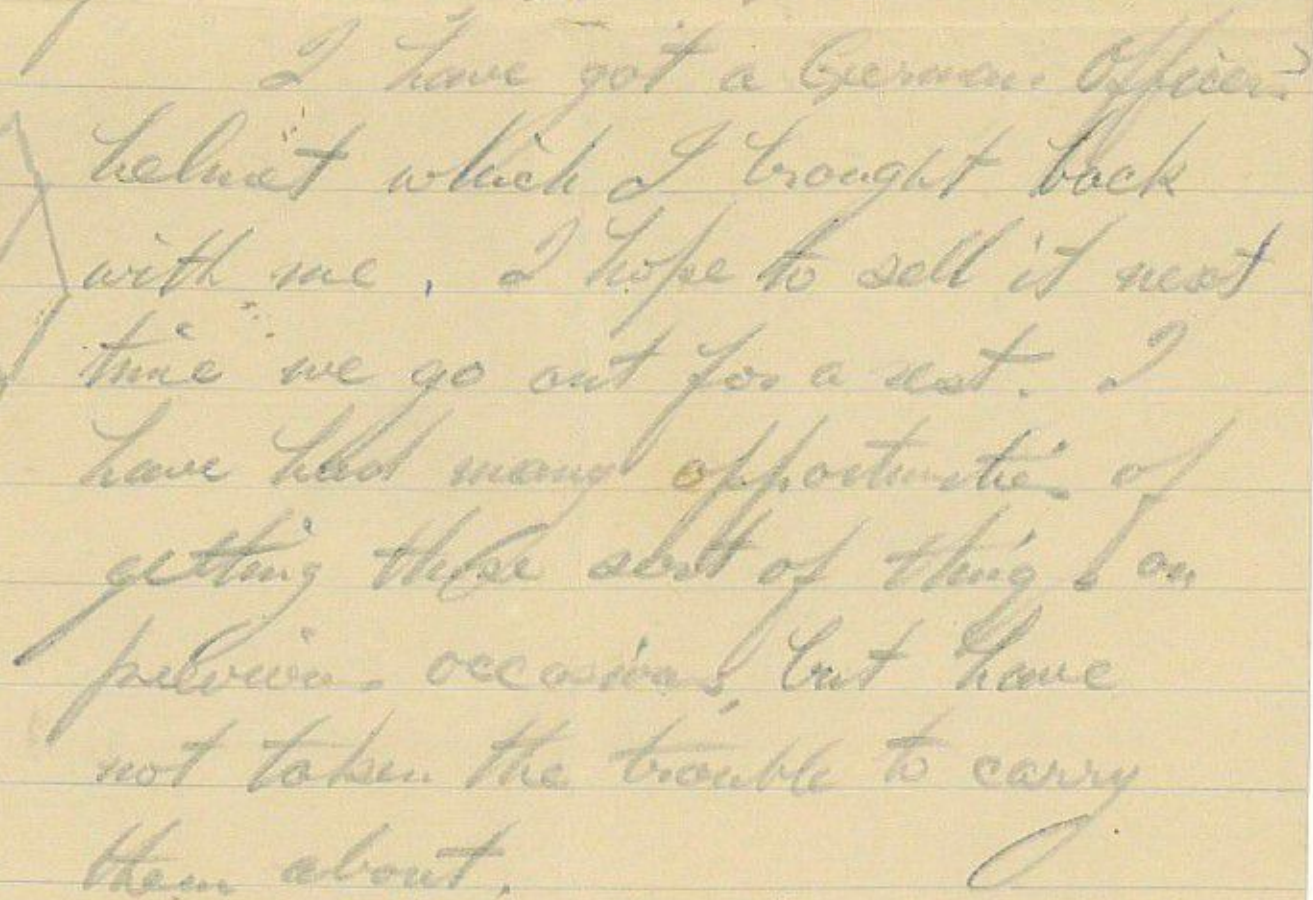 I have got a German Officers
helmet which I brought back
with me. I hope to sell it next
time we go out for a rest. I
have had many opportunities of
getting these sort of things on
previous occasions, but have
not taken the trouble to carry
them about.